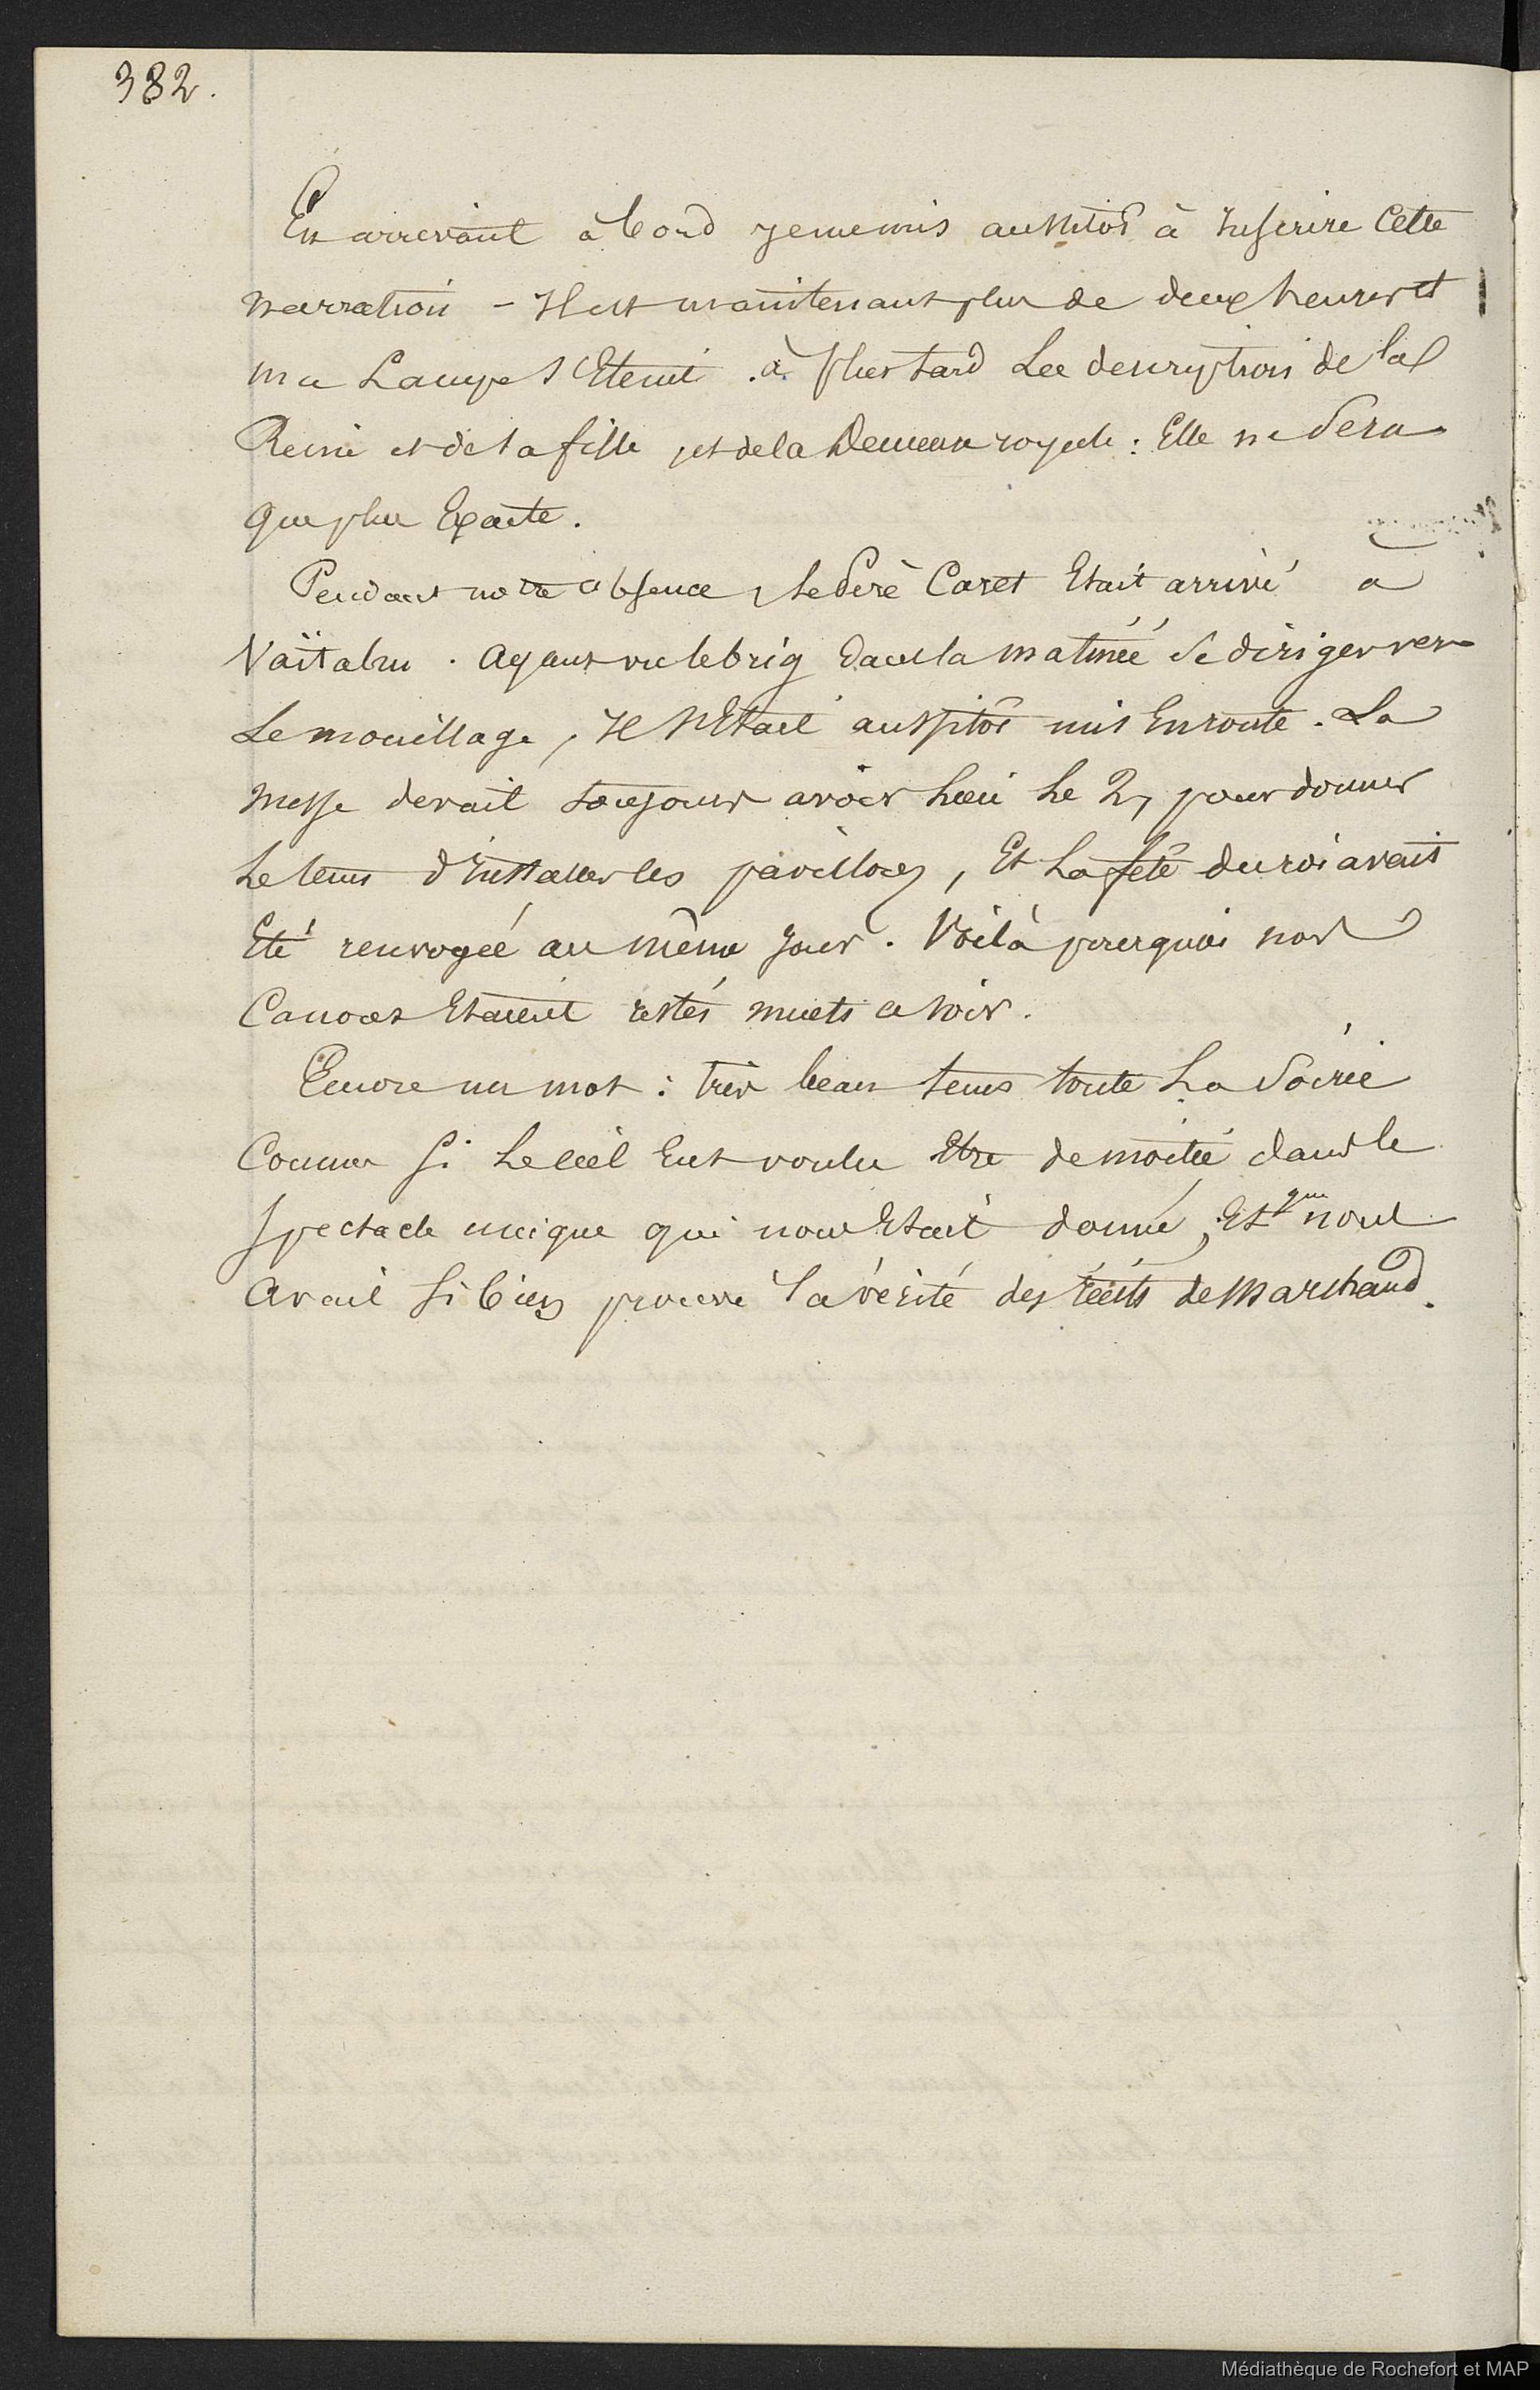 382.
En arrivant à bord je me mis aussitôt à Inscrire Cette
narration - Il est maintenant plus de deux heures et
ma Lampe s'Eteint. à plus tard La description de la
Reine et de sa fille, et de la Demeure royale : Elle ne Sera
que plus Exacte.
Pendant notre absence, le Père Caret Etait arrivé à
Vaïtahu. Ayant vu le brig dans la matinée Se diriger vers
Le mouillage, Il s'Etait aussitôt mis En route. La
Messe devait toujours avoir Lieu Le 2, pour donner
Le tems d'Installer les pavillons, Et La fête du roi avait
Eté renvoyée au même Jour. Voilà pourquoi nos
Canons Etaient restés muets ce soir.
Encore un mot : très beau tems toute La Soirée
Comme Si Le ciel Eut voulu Etre de moitié dans le
Spectacle unique qui nous Etait donné, Et qui nous
Avait Si bien prouvé la vérité des récits de Marchand.
Médiathèque de Rochefort et MAP